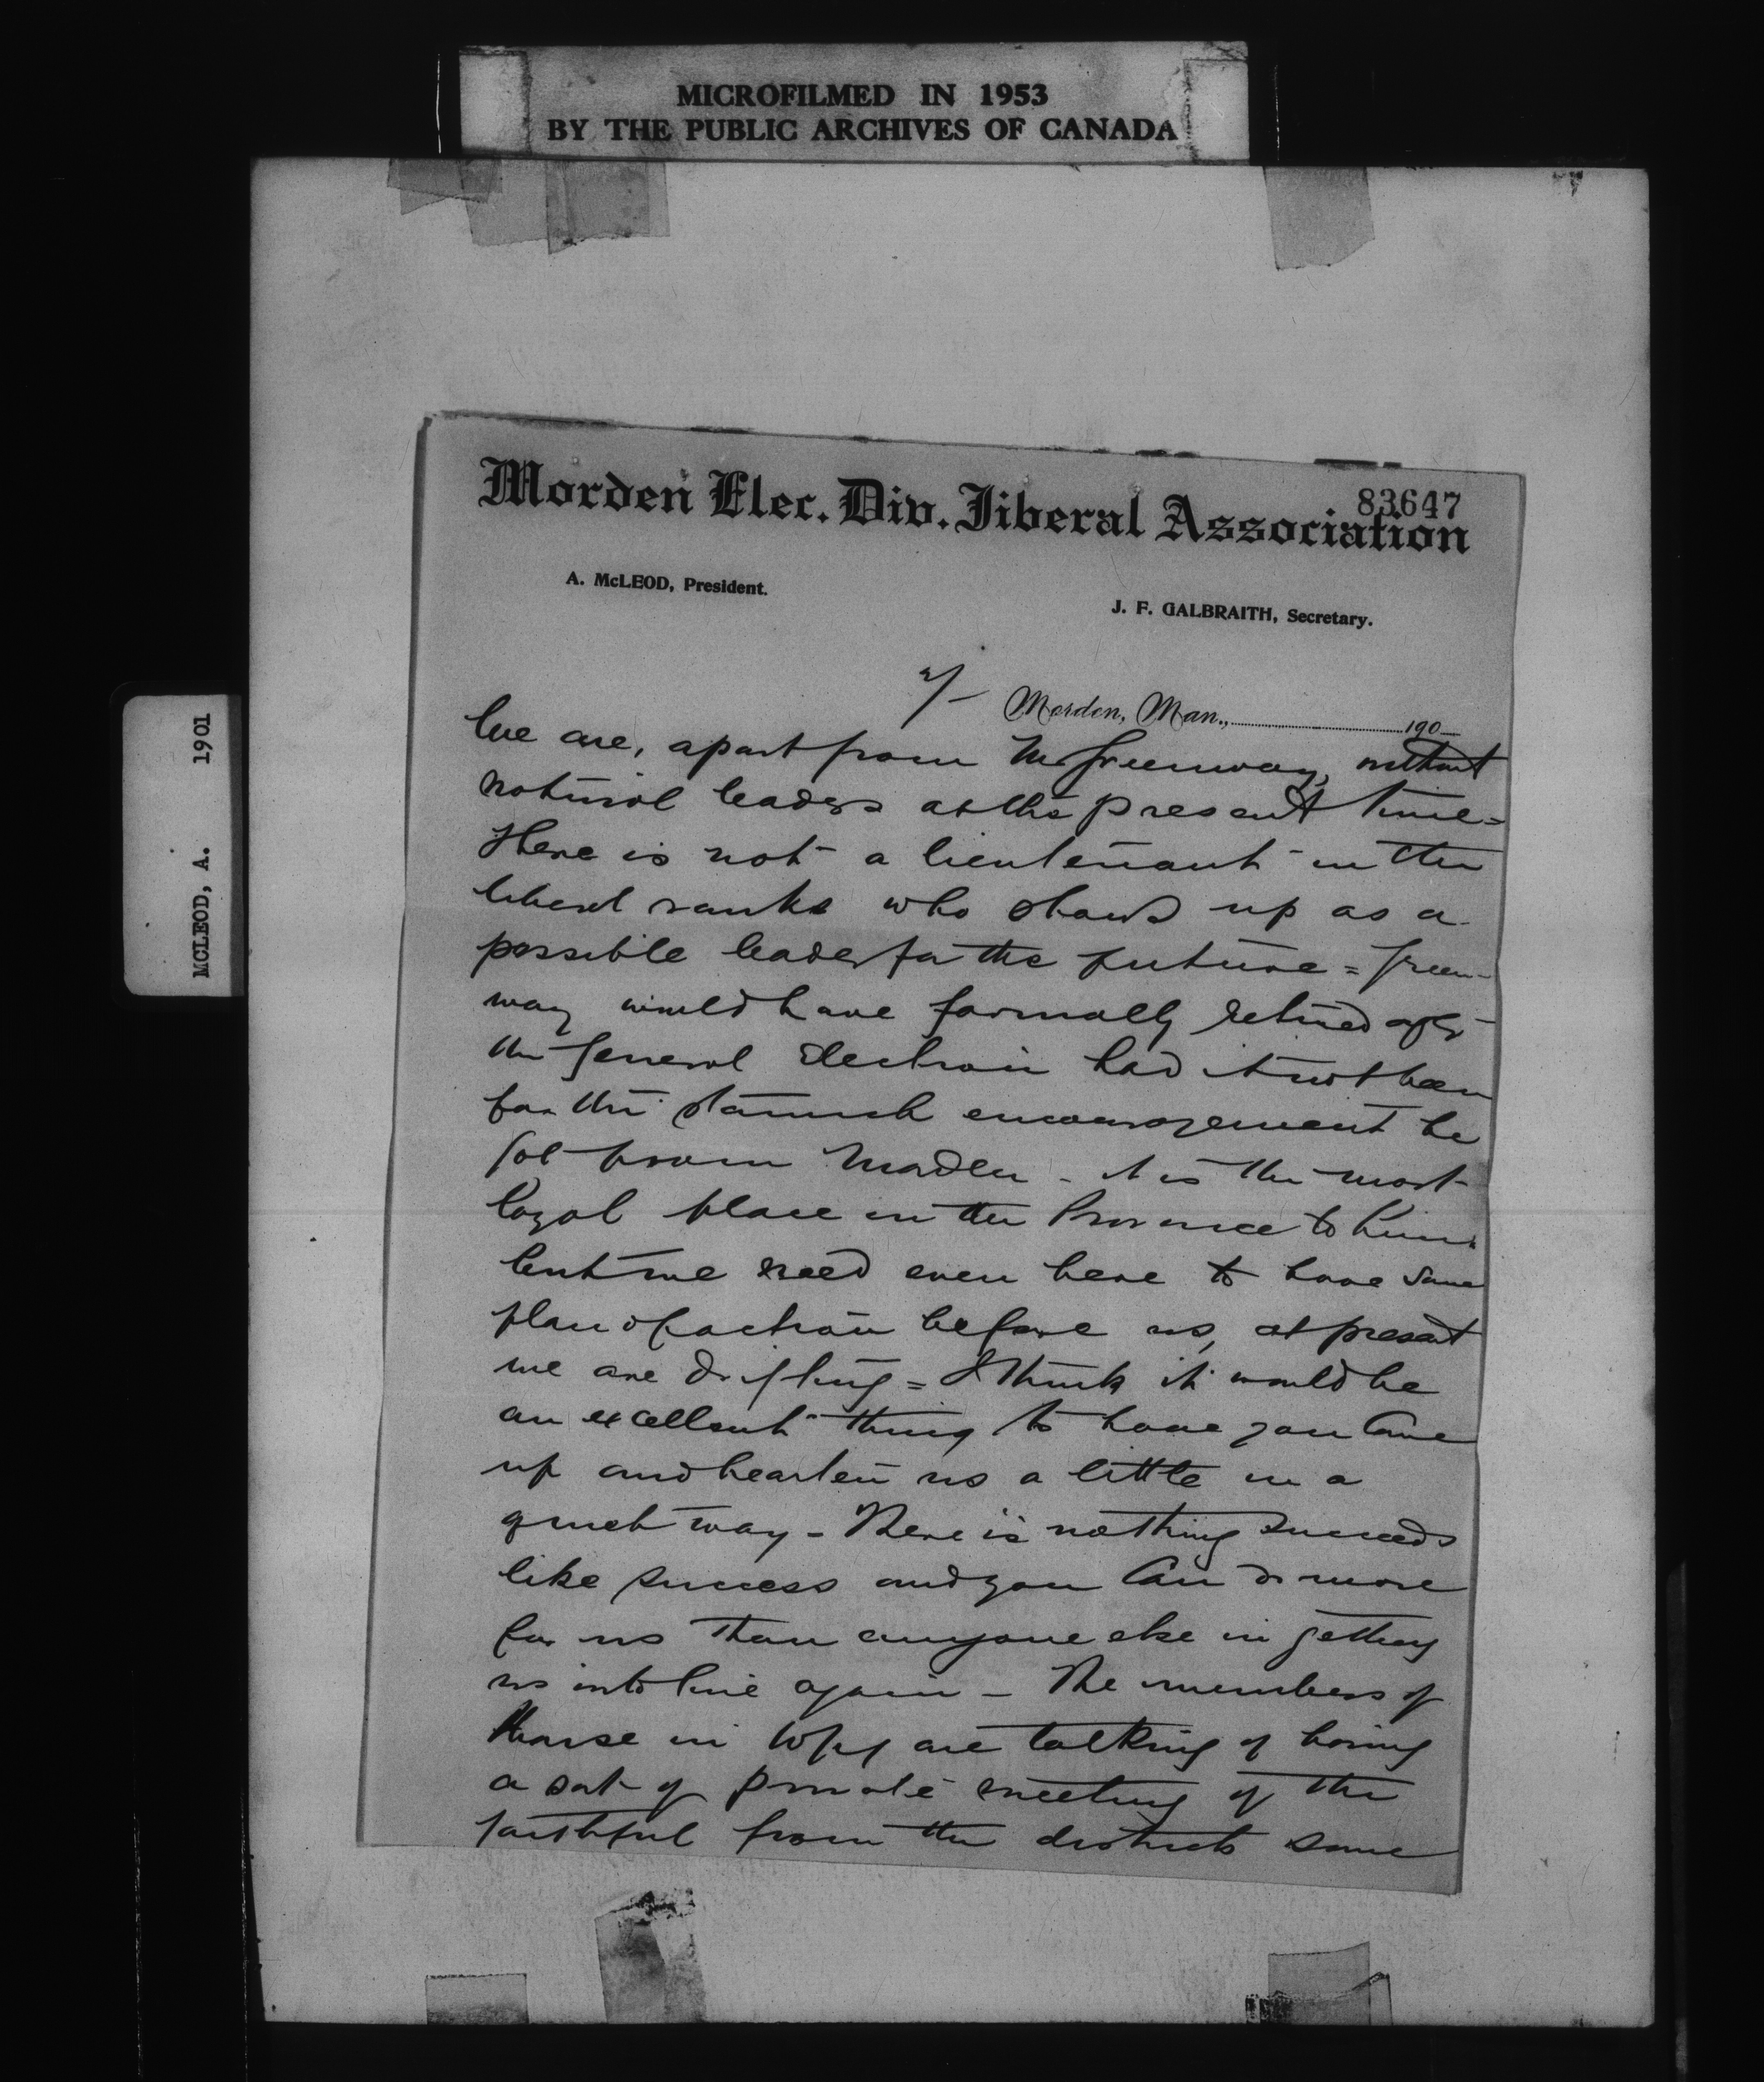 MICROFILMED IN 1953
BY THE PUBLIC ARCHIVES OF CANADA
MCLEOD, A. 1901
83647
Morden Elec. Div. Liberal Association
A. McLEOD, President.
J. F. GALBRAITH, Secretary.
2/-
Morden, Man., 190-
We are, apart from Mr Greenway, without
natural leaders at the present time =
There is not a lieutenant in the
liberal ranks who shows up as a
possible leader for the future = Green-
way would have formally retired after
the General Election had it not been
for the staunch encouragement he
got from Morden - it is the most
loyal place in the Province to him.
but we need even here to have some
plan of action before us, at present
we are drifting = I think it would be
an excellent thing to have you come
up and hearten us a little in a
quiet way - There is nothing succeeds
like success and you can do more
for us than anyone else in getting
us into line again - The members of
House in Wpg are talking of having
a sort of private meeting of the
faithful from the districts some